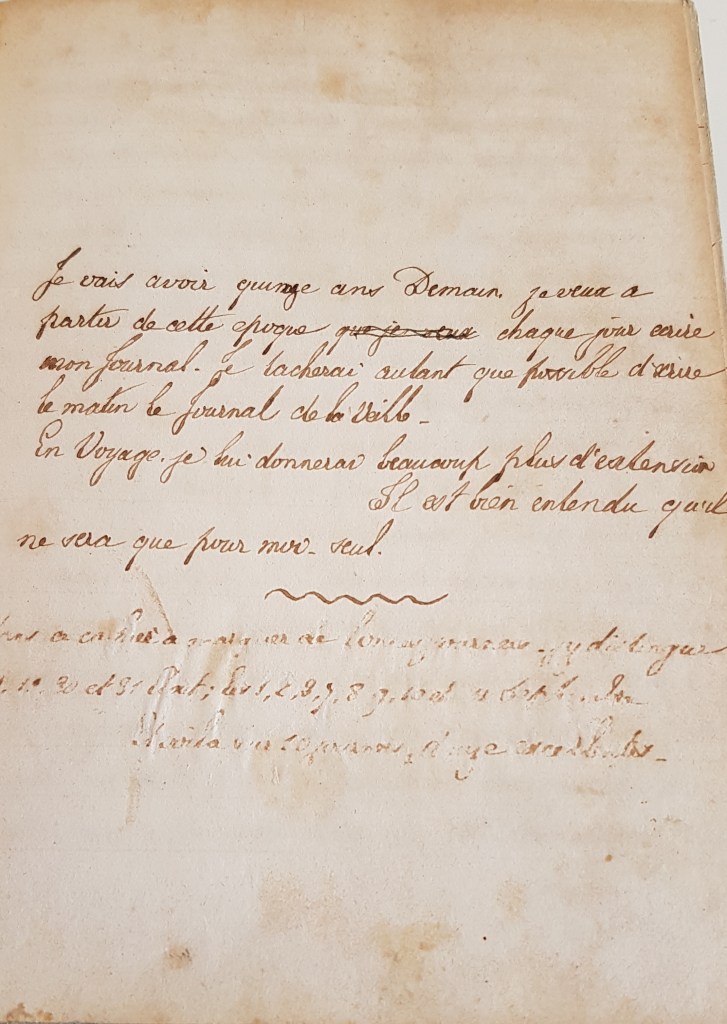 Je vais avoir quinze ans Demain. je veux a
partir de cette epoque que je veux chaque jour ecrire
mon Journal. Je tacherai autant que possible d'ecrire
le matin le Journal de la Veille_
En Voyage. je lui donnerai beaucoup plus d'extension
Il est bien entendu qu'il
ne sera que pour moi_ seul.
ce cahier a marquer de bonnes journees_ j'y distingue
30 et 31 Aout; les 1, 2, 3, 7, 8, 9, 10 et 11 Septembre